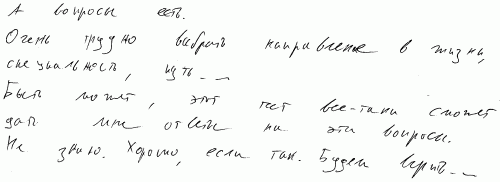 А вопросы есть.
Очень трудно выбрать направление в жизни,
специальность, путь...
Быть может, этот тест все-таки сможет
дать мне ответы на эти вопросы.
Не знаю. Хорошо, если так. Будем верить...